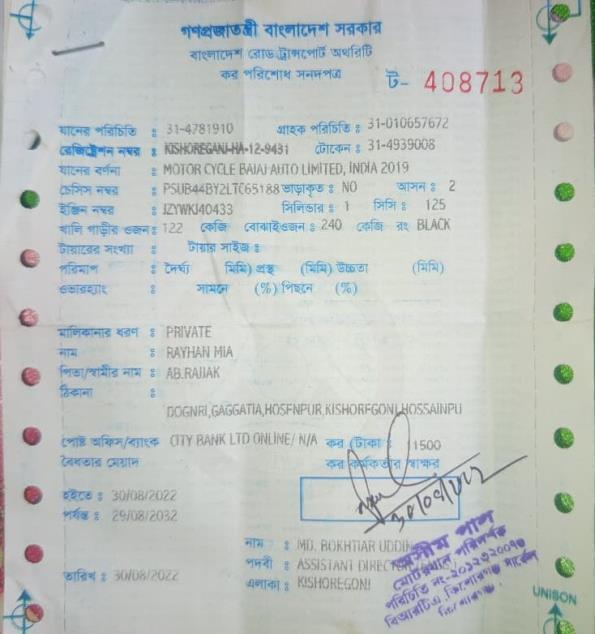 গণপ্রজাতন্ত্রী বাংলাদেশ সরকার
বাংলাদেশ রোড ট্রান্সপোর্ট অথরিটি
কর পরিশোধ সনদপত্র ট- 408713
যানের পরিচিতি : 31-4781910 গ্রাহক পরিচিতি : 31-010657672
রেজিষ্ট্রেশন নম্বর : KISHOREGANJ-HA-12-9431 টোকেন : 31-4939008
যানের বর্ণনা : MOTOR CYCLE BAJAJ AUTO LIMITED, INDIA 2019
চেসিস নম্বর : PSUB44BY2LTC65188 ভাড়াকৃত : NO আসন : 2
ইঞ্জিন নম্বর : JZYWKJ40433 সিলিন্ডার : 1 সিসি : 125
খালি গাড়ীর ওজন : 122 কেজি বোঝাইওজন : 240 কেজি রং BLACK
টায়ারের সংখ্যা : টায়ার সাইজ :
পরিমাপ : দৈর্ঘ্য (মিমি) প্রস্থ (মিমি) উচ্চতা (মিমি)
ওভারহ্যাং : সামনে (%) পিছনে (%)
মালিকানার ধরণ : PRIVATE
নাম : RAYHAN MIA
পিতা/স্বামীর নাম : AB.RAJJAK
ঠিকানা :
DOGNRI,GAGGATIA,HOSENPUR,KISHOREGONJ,HOSSAINPU
পোষ্ট অফিস/ব্যাংক CITY BANK LTD ONLINE/ N/A কর (টাকা) : 1500
বৈধতার মেয়াদ কর কর্মকর্তার স্বাক্ষর
হইতে : 30/08/2022
পর্যন্ত : 29/08/2032
30/08/2022
নাম : MD. BOKHTIAR UDDIN
পদবী : ASSISTANT DIRECTOR
তারিখ : 30/08/2022 এলাকা : KISHOREGONJ
অসীম পাল
মোটরযান পরিদর্শক
বিআরটিএ, কিশোরগঞ্জ সার্কেল
কিশোরগঞ্জ।
UNISON